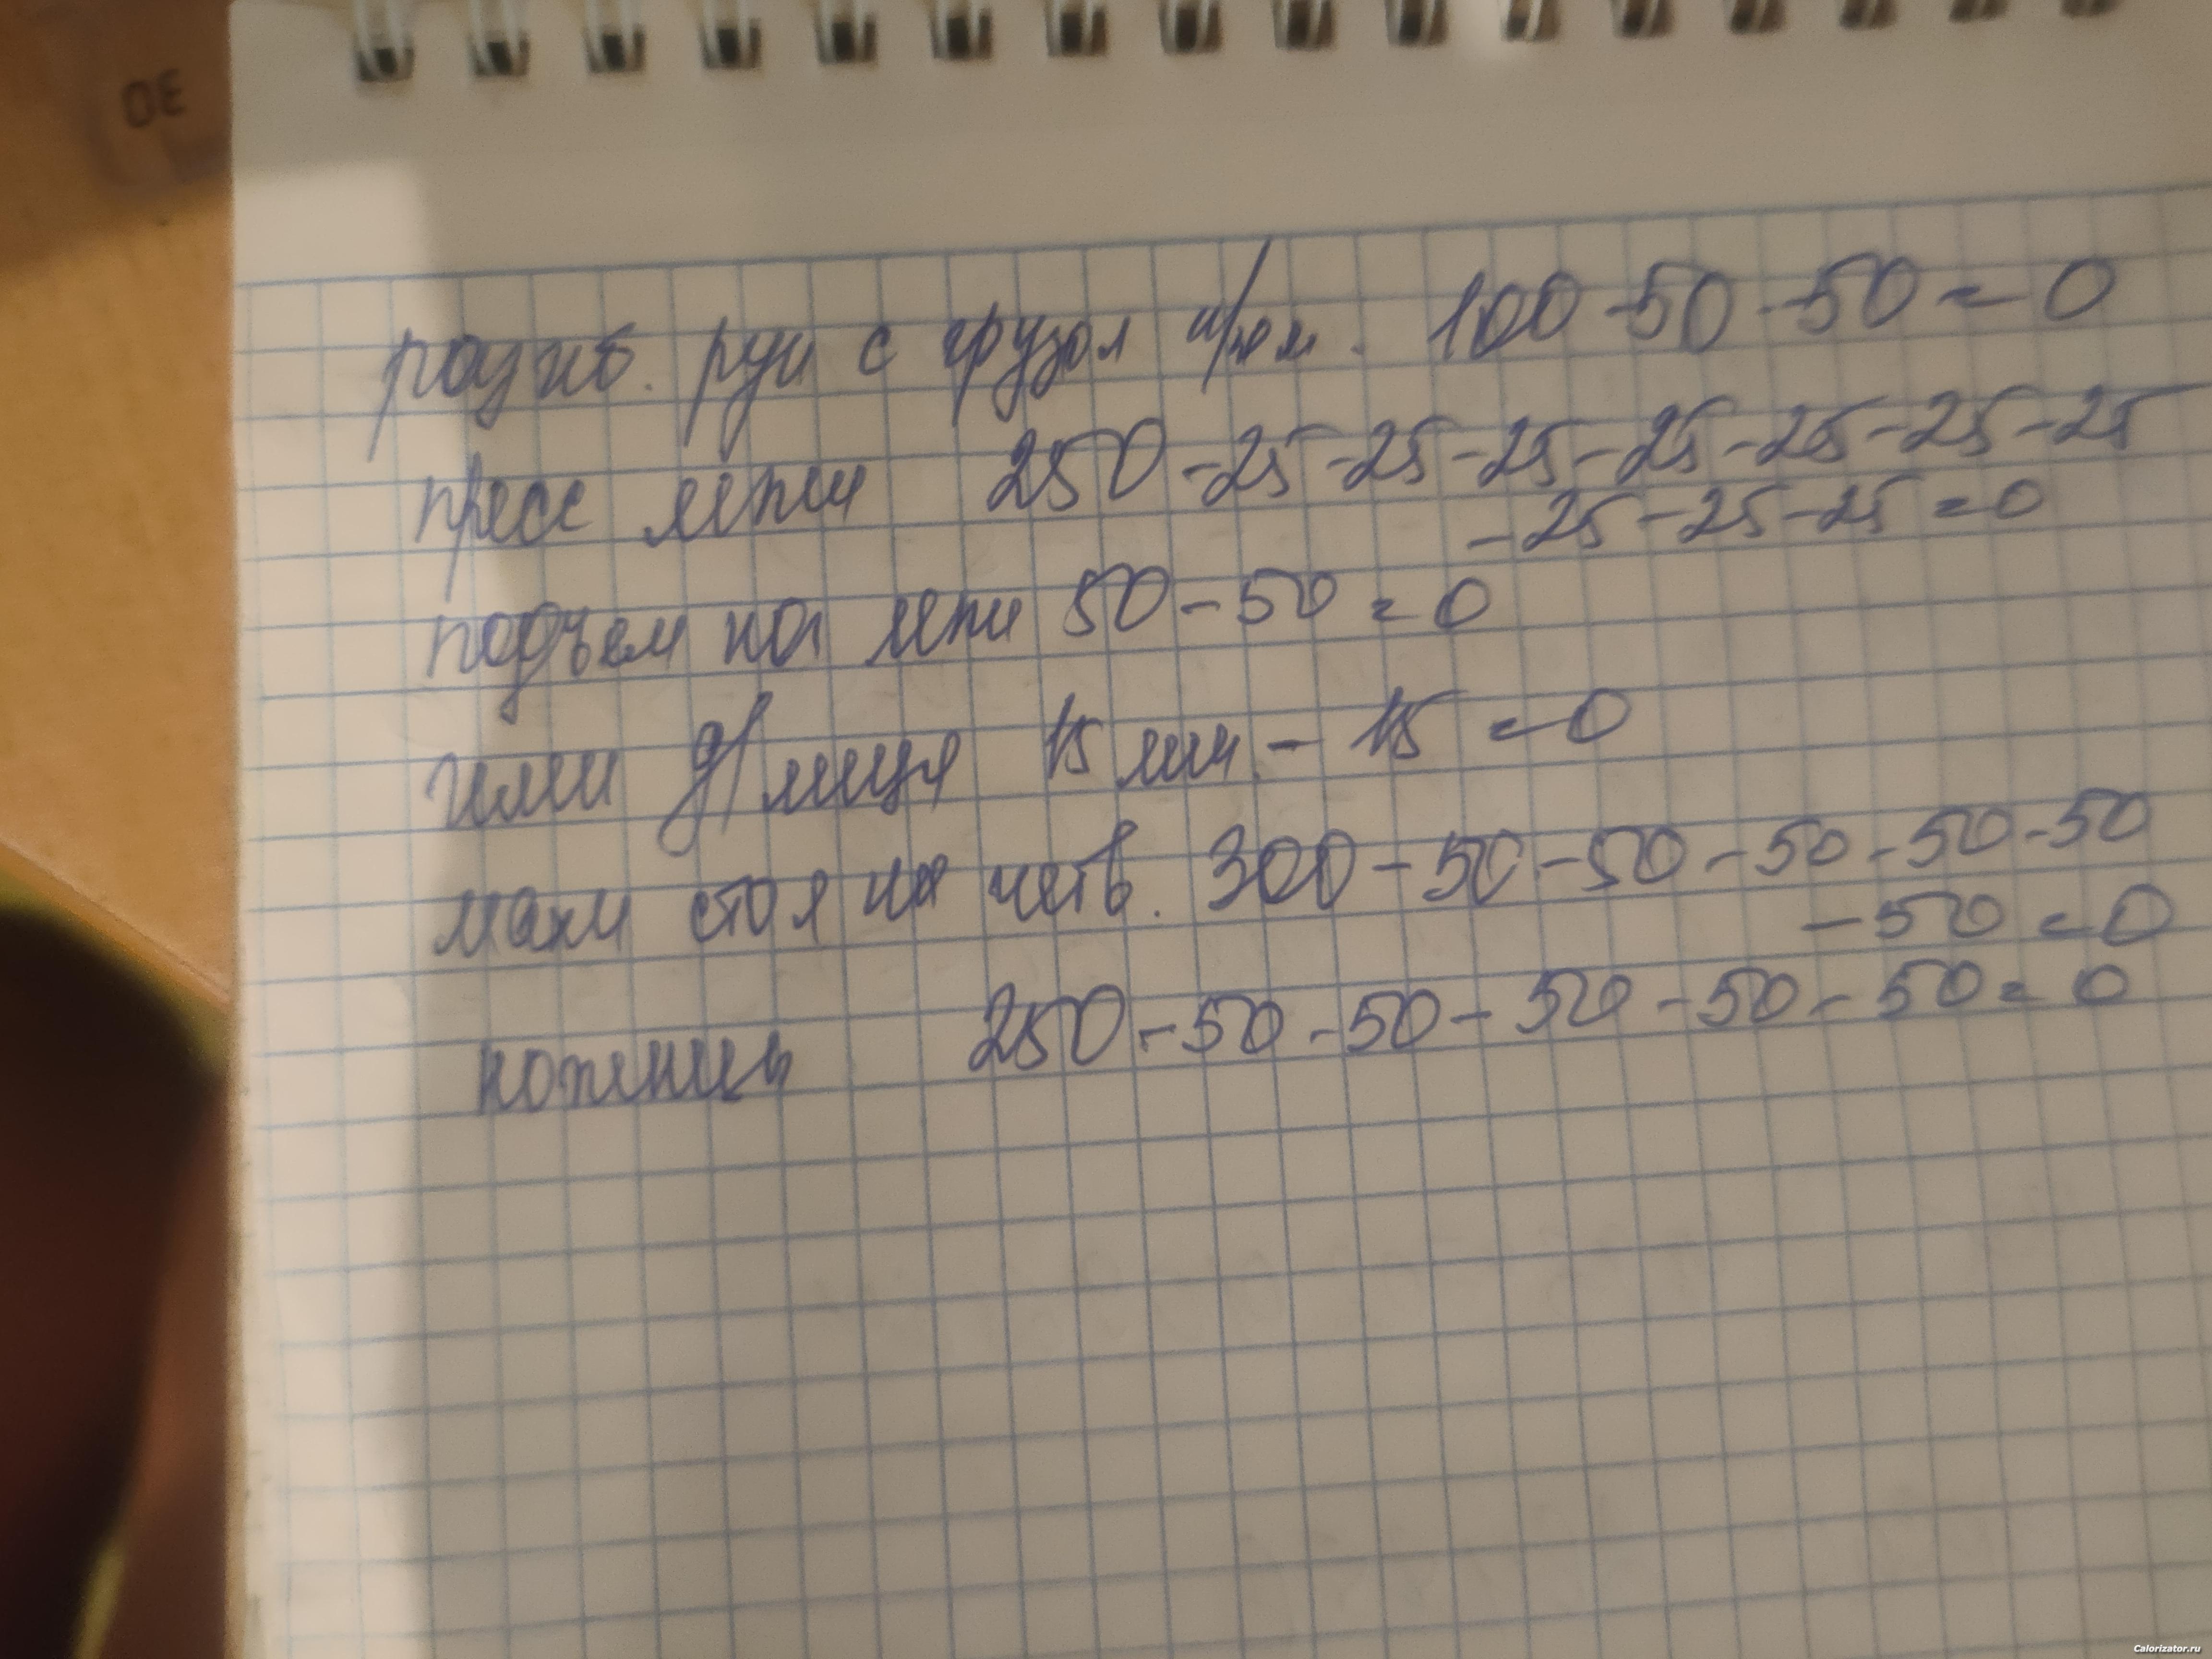 разгиб. рук с грузом 100-50-50=0
пресс лежа 250-25-25-25-25-25-25-25
-25-25-25=0
подъем ног лежа 50-50=0
гимн д/лица 15 мин.-15=0
махи стоя на четв. 300-50-50-50-50-50
-50=0
ножницы 250-50-50-50-50-50=0
30
Calorizator.ru